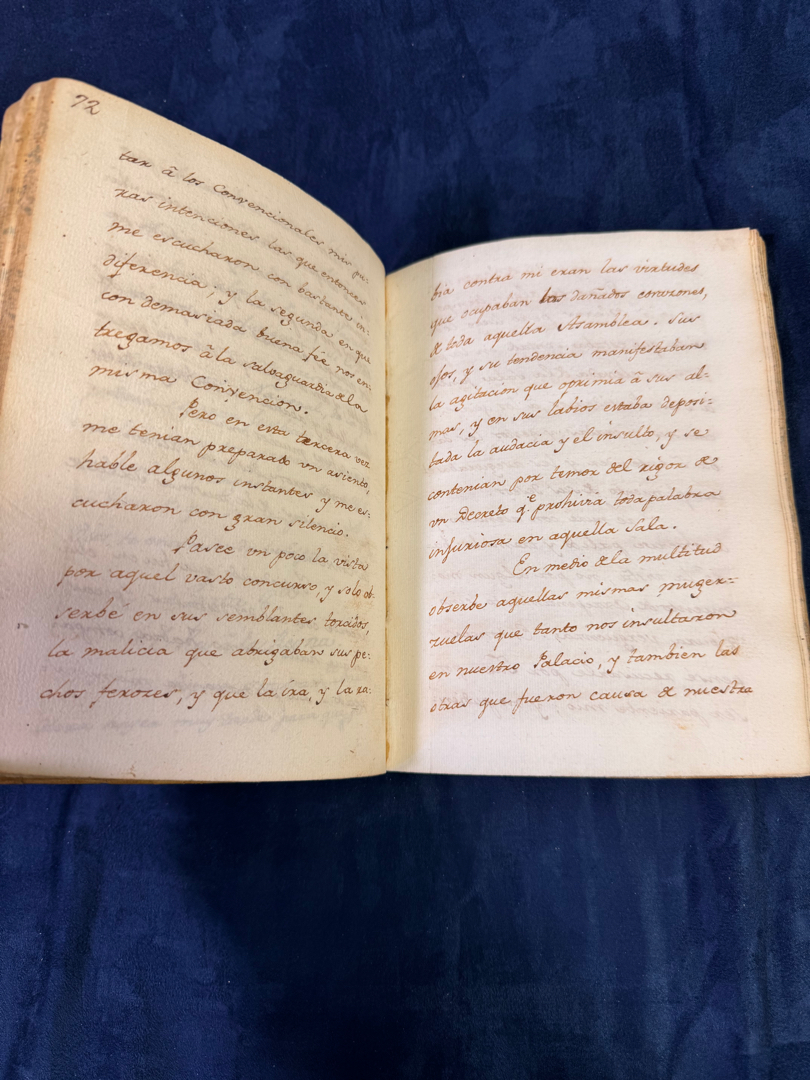 72
tar â los Convencionales mis pu-
ras intenciones las que entonces
me escucharon con bastante in-
diferencia; y la segunda en que
con demasiada buena fée nos en-
tregamos â la salvaguardia de la
misma Convencion.
Pero en esta tercera vez
me tenian preparado vn asiento,
hable algunos instantes y me es-
cucharon con gran silencio.
Pasee vn poco la vista
por aquel vasto concurso, y solo ob-
serbé en sus semblantes torcidos,
la malicia que abrigaban sus pe-
chos feroces, y que la ira, y la ra-
bia contra mi eran las virtudes
que ocupaban los dañados corazones,
de toda aquella Asamblea. Sus
ojos, y su tendencia manifestaban
la agitacion que oprimia â sus al-
mas, y en sus labios estaba deposi-
tada la audacia y el insulto, y se
contenian por temor del rigor de
vn Decreto qe. prohivia toda palabra
injuriosa en aquella Sala.
En medio de la multitud
obserbe aquellas mismas muger-
zuelas que tanto nos insultaron
en nuestro Palacio, y tambien las
otras que fueron causa de nuestra